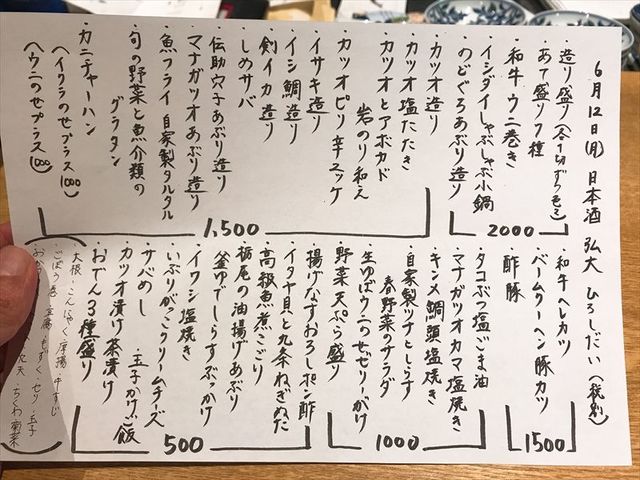 6月12日(月) 日本酒 弘大 ひろしだい (税別)
・造り盛り(各1切ずつ色々)
・あて盛り7種
・和牛ウニ巻き
・イシダイしゃぶしゃぶ小鍋
・のどぐろあぶり造り
2000
・カツオ造り
・カツオ塩たたき
・カツオとアボカド
岩のり和え
・カツオピリ辛ユッケ
・イサキ造り
・イシ鯛造り
・剣イカ造り
・しめサバ
・伝助穴子あぶり造り
・マナガツオあぶり造り
・魚フライ自家製タルタル
・旬の野菜と魚介類の
グラタン
・カニチャーハン
(イクラのせプラス1000)
(ウニのせプラス1000)
1,500
・和牛ヘレカツ
・バームクーヘン豚カツ
・酢豚
1500
・タコぶつ塩ごま油
・マナガツオカマ塩焼き
・キンメ鯛頭塩焼き
・自家製ツナとしらす
春野菜のサラダ
・生ゆばウニのせゼリーがけ
・野菜天ぷら盛り
1000
・揚げなすおろしポン酢
・イタヤ貝と九条ねぎぬた
・高級魚煮こごり
・栃尾の油揚げあぶり
・釜ゆでしらすぶっかけ
・イワシ塩焼き
・いぶりがっこクリームチーズ
・サバめし ・玉子かけご飯
・カツオ漬け茶漬け
・おでん3種盛り
500
大根・こんにゃく・厚揚・牛すじ
・ごぼう巻・豆腐・もずく・セリ・玉子
天・ちくわ・菊菜